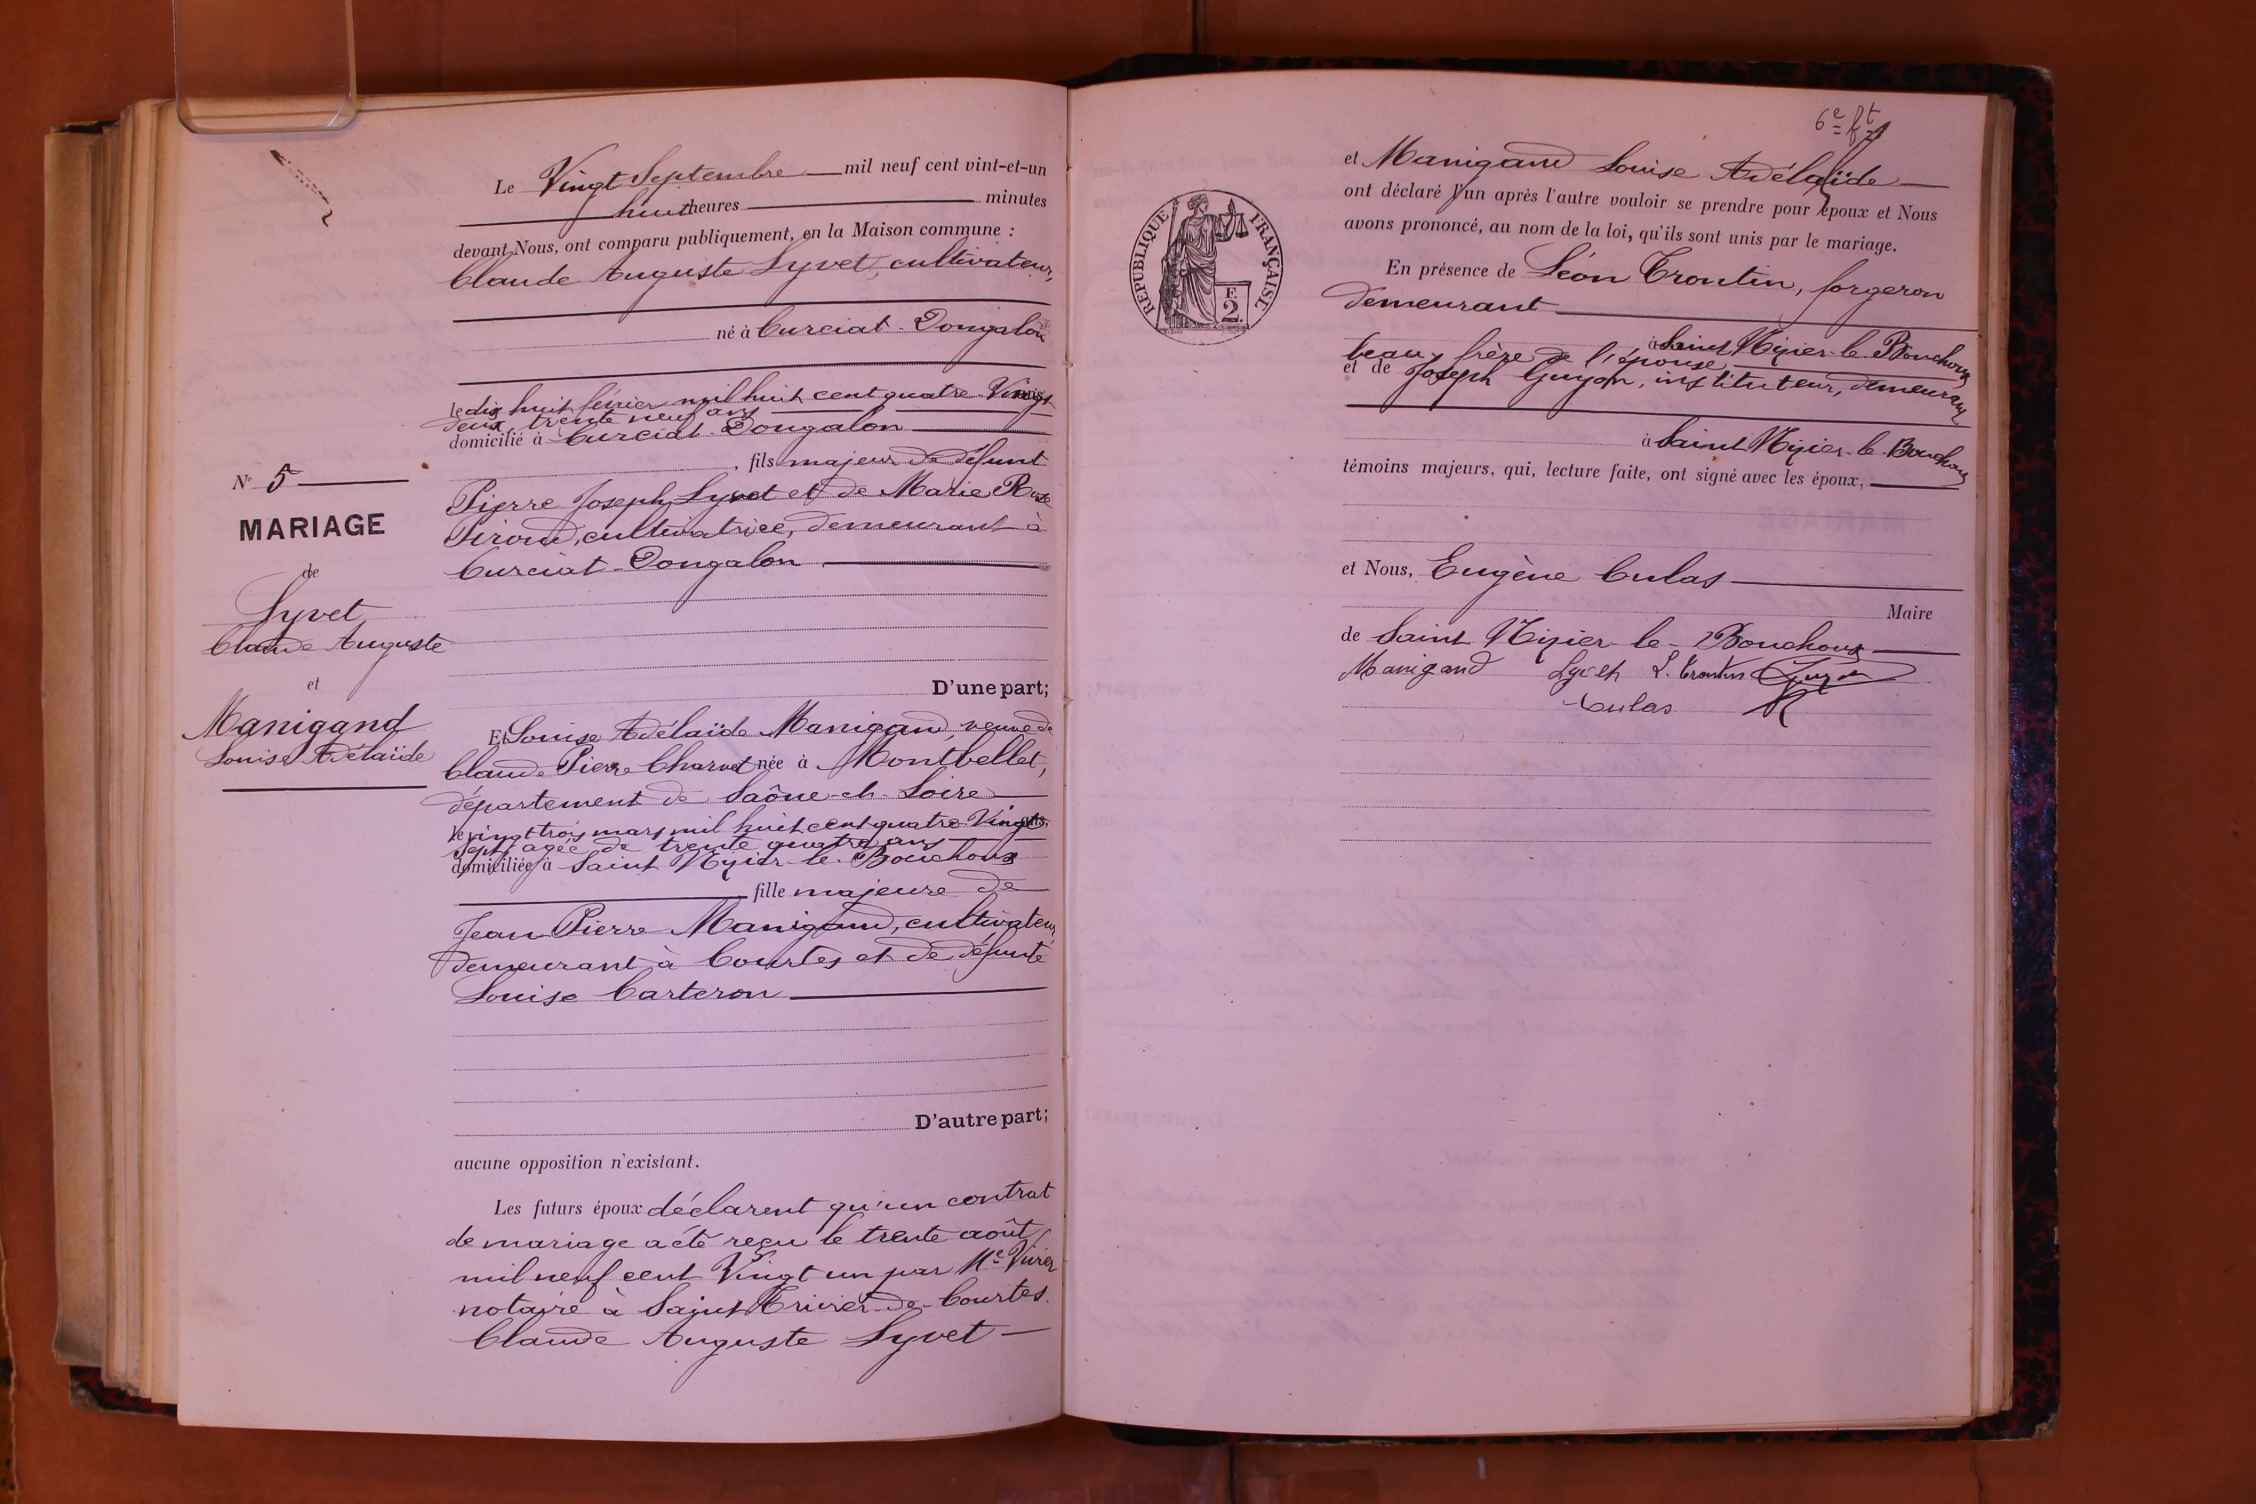 Le Vingt Septembre mil neuf cent vint-et-un
huit heures minutes
devant Nous, ont comparu publiquement, en la Maison commune :
Claude Auguste Lyvet, cultivateur,
né à Curciat-Dongalon
le dix huit février mil huit cent quatre Vingt
deux, trente neuf ans
domicilié à Curciat-Dongalon
, fils majeur de défunt
Pierre Joseph Lyvet et de Marie Rose
Piroud, cultivatrice, demeurant à
Curciat-Dongalon
N° 5
MARIAGE
de
Lyvet
Claude Auguste
et
Manigand
Louise Adélaïde
D'une part;
Et Louise Adélaïde Manigand, veuve de
Claude Pierre Charvet née à Montbellet,
département de Saône-et-Loire
le vingt trois mars mil huit cent quatre Vingt
sept, agée de trente quatre ans
domiciliée à Saint Nizier-le-Bouchoux
fille majeure de
Jean Pierre Manigand, cultivateur,
demeurant à Courtes et de défunte
Louise Carteron
D'autre part;
aucune opposition n'existant.
Les futurs époux déclarent qu'un contrat
de mariage a été reçu le trente août
mil neuf cent Vingt un par Me Vivier
notaire à Saint Trivier-de-Courtes.
Claude Auguste Lyvet
6e ft
et Manigand Louise Adélaïde
ont déclaré l'un après l'autre vouloir se prendre pour époux et Nous
avons prononcé, au nom de la loi, qu'ils sont unis par le mariage.
RÉPUBLIQUE FRANÇAISE
F.
2.
En présence de Léon Trontin, forgeron
demeurant
à Saint Nizier-le-Bouchoux
beau-frère de l'épouse
et de Joseph Guyon, instituteur, demeurant
à Saint Nizier-le-Bouchoux
témoins majeurs, qui, lecture faite, ont signé avec les époux,
et Nous, Eugène Culas
Maire
de Saint Nizier-le-Bouchoux
Manigand Lyvet L. Trontin Guyon
Culas